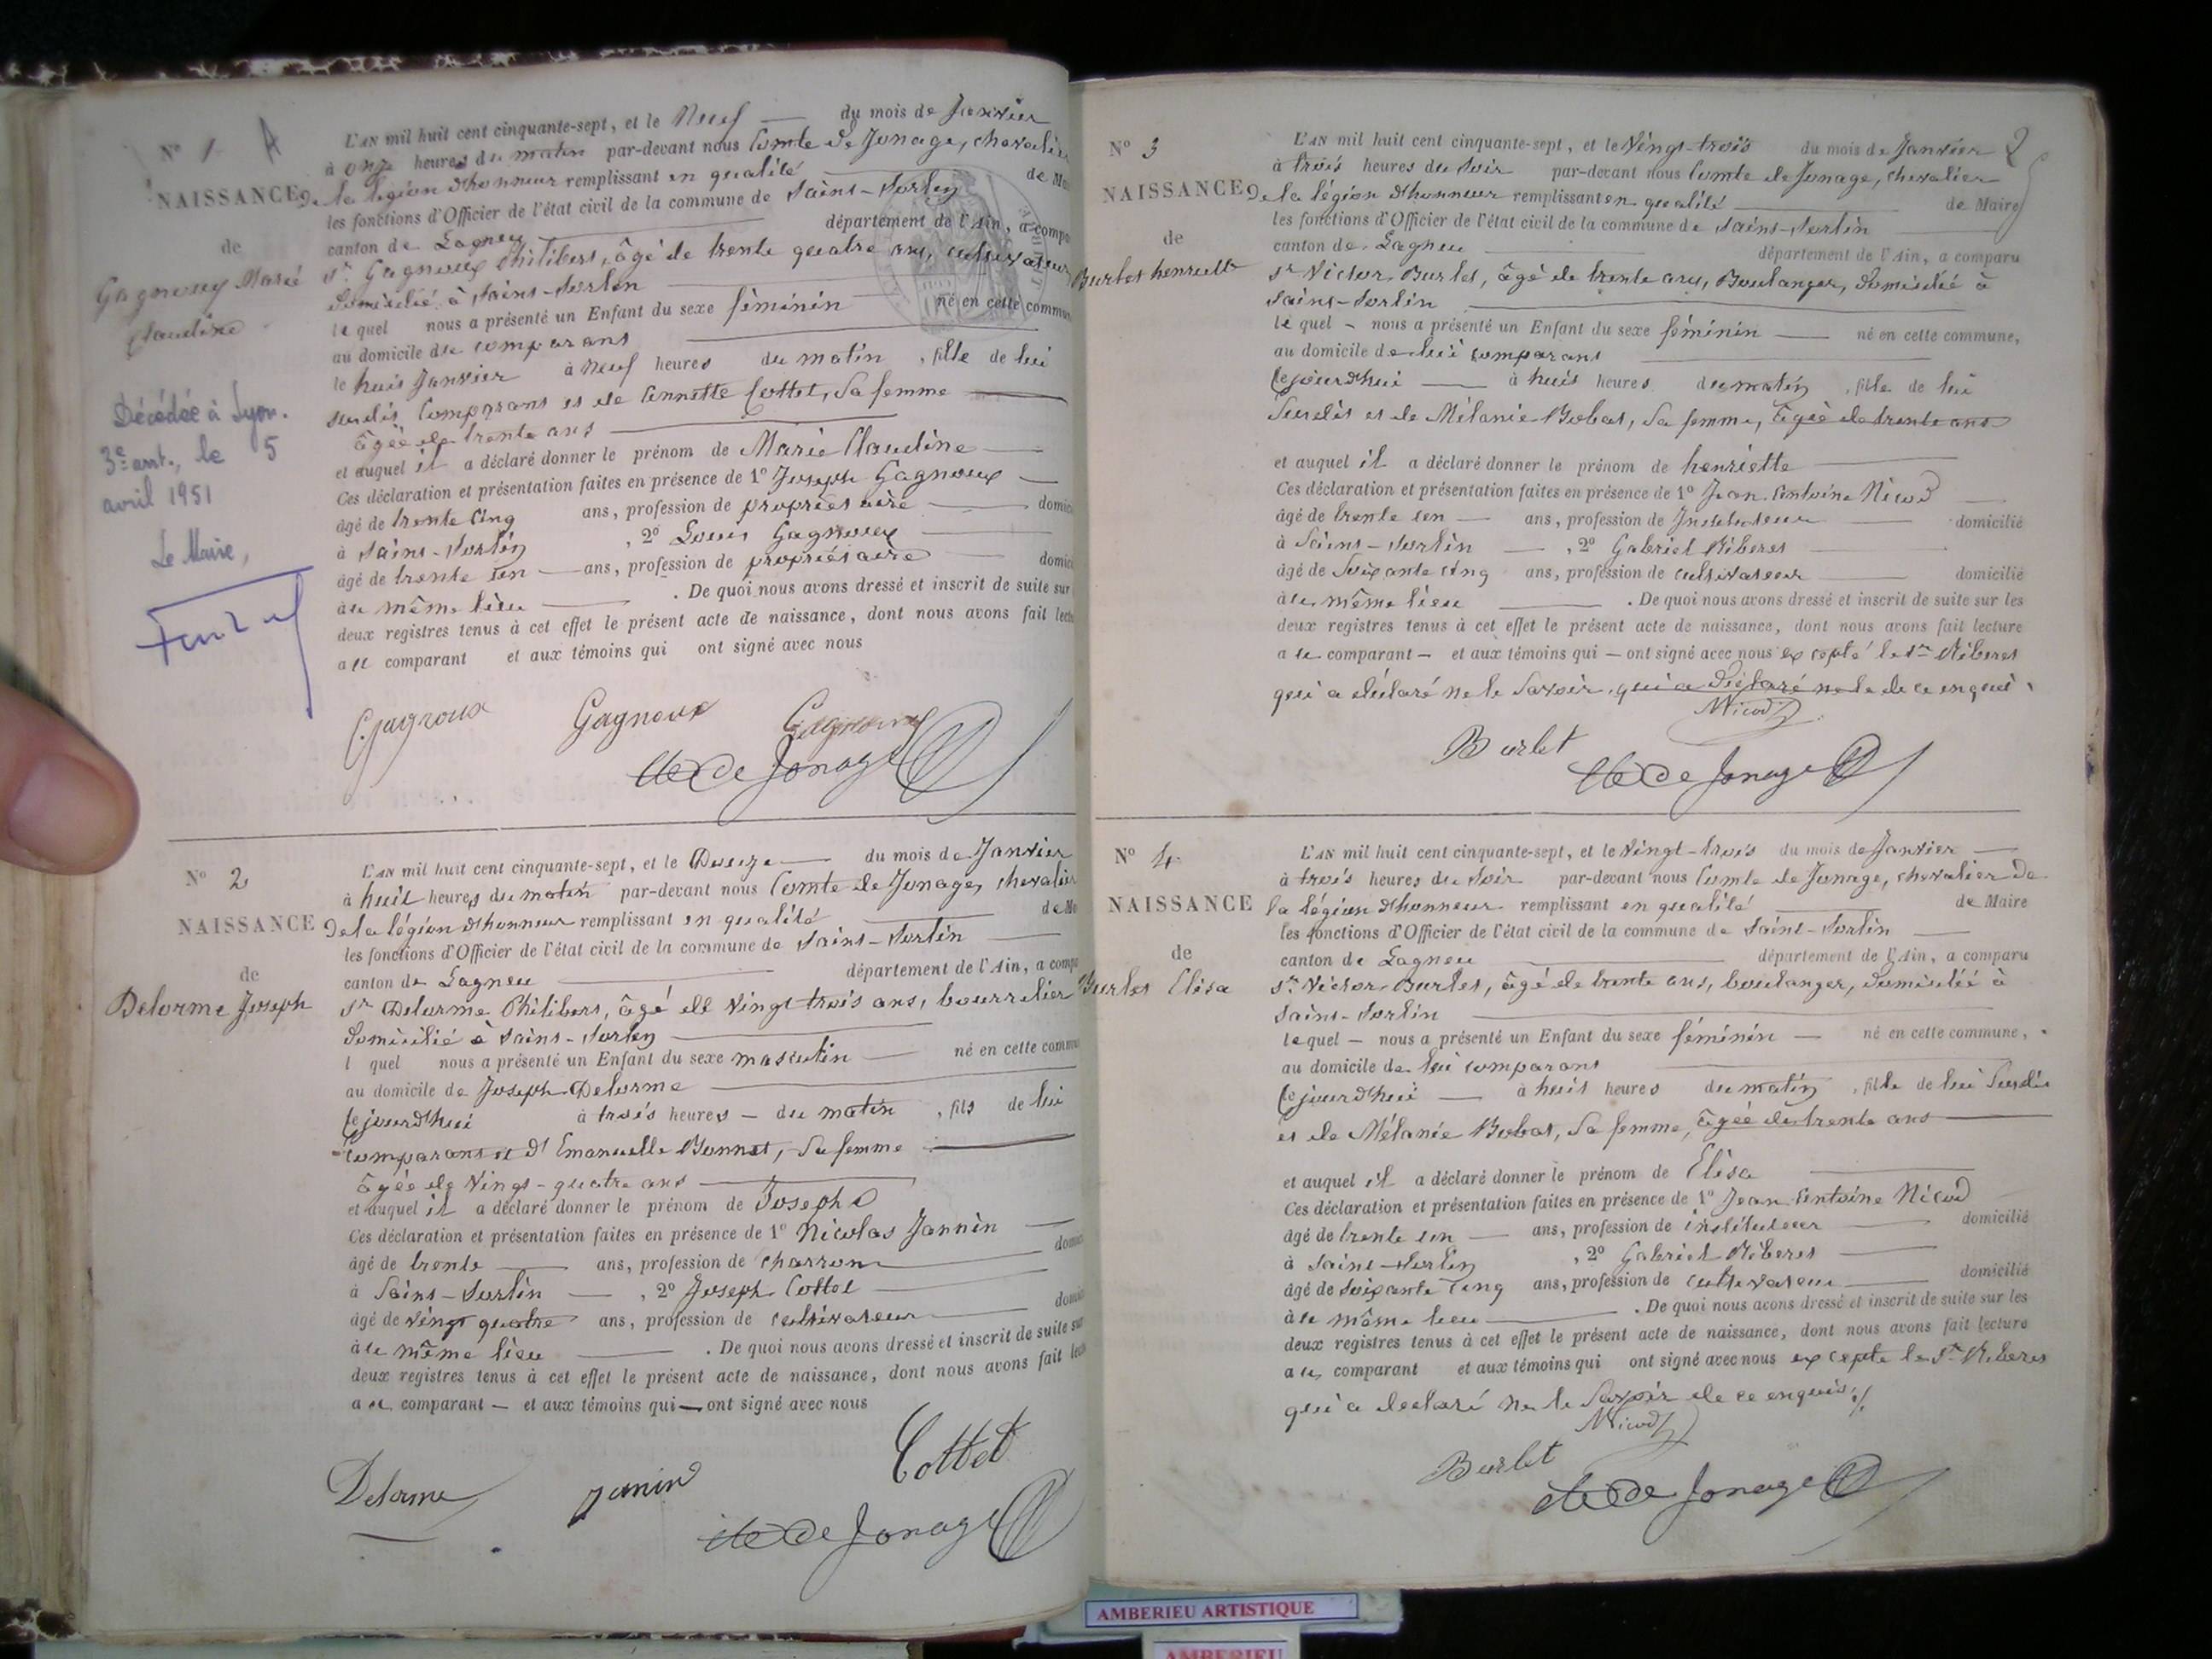 N° 1 A
NAISSANCE
de
Gagnoux Marie
Claudine
Décédée à Lyon.
3e arrt., le 5
avril 1951
Le Maire,
L'AN mil huit cent cinquante-sept, et le Neuf du mois de Janvier
à onze heures du matin par-devant nous Comte de Jonage, chevalier
de la légion d'honneur remplissant en qualité de Ma
les fonctions d'Officier de l'état civil de la commune de Saint-Sorlin
canton de Lagneu département de l'Ain, a compa
sr Gagnoux Philibert, âgé de trente quatre ans, cultivateur
domicilié à Saint-Sorlin
lequel nous a présenté un Enfant du sexe féminin né en cette commun
au domicile du comparant
le huit Janvier à neuf heures du matin, fille de lui
susdit Comparant et de Annette Cottet, sa femme
âgée de trente ans
et auquel il a déclaré donner le prénom de Marie Claudine
Ces déclaration et présentation faites en présence de 1° Joseph Gagnoux
âgé de trente cinq ans, profession de propriétaire domici
à Saint-Sorlin, 2° Louis Gagnoux
âgé de trente un ans, profession de propriétaire domici
à u même lieu . De quoi nous avons dressé et inscrit de suite sur
deux registres tenus à cet effet le présent acte de naissance, dont nous avons fait lectu
au comparant et aux témoins qui ont signé avec nous
Gagnoux Gagnoux Gagnoux
Cte de Jonage
N° 2
NAISSANCE
de
Delorme Joseph
L'AN mil huit cent cinquante-sept, et le Douze du mois de Janvier
à huit heures du matin par-devant nous Comte de Jonage, chevalier
de la légion d'honneur remplissant en qualité de Ma
les fonctions d'Officier de l'état civil de la commune de Saint-Sorlin
canton de Lagneu département de l'Ain, a compa
sr Delorme Philibert, âgé de vingt trois ans, bourrelier
domicilié à Saint-Sorlin
l quel nous a présenté un Enfant du sexe masculin né en cette commu
au domicile de Joseph Delorme
Cejourd'hui à trois heures du matin, fils de lui
comparant et d'Emanuelle Bonnet, sa femme
âgée de vingt-quatre ans
et auquel il a déclaré donner le prénom de Joseph
Ces déclaration et présentation faites en présence de 1° Nicolas Jannin
âgé de trente ans, profession de charron domici
à Saint-Sorlin, 2° Joseph Cottet
âgé de vingt quatre ans, profession de cultivateur domici
à u même lieu . De quoi nous avons dressé et inscrit de suite sur
deux registres tenus à cet effet le présent acte de naissance, dont nous avons fait lect
au comparant et aux témoins qui ont signé avec nous
Delorme Janin Cottet
Cte de Jonage
2
N° 3
NAISSANCE
de
Burlet henriette
L'AN mil huit cent cinquante-sept, et le Vingt-trois du mois de Janvier
à trois heures du soir par-devant nous Comte de Jonage, chevalier
de la légion d'honneur remplissant en qualité de Maire
les fonctions d'Officier de l'état civil de la commune de Saint-Sorlin
canton de Lagneu département de l'Ain, a comparu
sr Victor Burlet, âgé de trente ans, Boulanger, domicilié à
Saint-Sorlin
lequel nous a présenté un Enfant du sexe féminin né en cette commune,
au domicile de lui comparant
Cejourd'hui à huit heures du matin, fille de lui
susdit et de Mélanie Bobat, sa femme, âgée de trente ans
et auquel il a déclaré donner le prénom de henriette
Ces déclaration et présentation faites en présence de 1° Jean Antoine Nicod
âgé de trente un ans, profession de Instituteur domicilié
à Saint-Sorlin, 2° Gabriel Riberet
âgé de soixante cinq ans, profession de cultivateur domicilié
à u même lieu . De quoi nous avons dressé et inscrit de suite sur les
deux registres tenus à cet effet le présent acte de naissance, dont nous avons fait lecture
au comparant et aux témoins qui ont signé avec nous excepté le sr Riberet
qui a déclaré ne le savoir, qui a déclaré ne le de ce enquis
Nicod
Burlet
Cte de Jonage
N° 4
NAISSANCE
de
Burlet Elisa
L'AN mil huit cent cinquante-sept, et le vingt-trois du mois de Janvier
à trois heures du soir par-devant nous Comte de Jonage, chevalier de
la légion d'honneur remplissant en qualité de Maire
les fonctions d'Officier de l'état civil de la commune de Saint-Sorlin
canton de Lagneu département de l'Ain, a comparu
sr Victor Burlet, âgé de trente ans, boulanger, domicilié à
Saint-Sorlin
lequel nous a présenté un Enfant du sexe féminin né en cette commune,
au domicile de lui comparant
Cejourd'hui à huit heures du matin, fille de lui susdit
et de Mélanie Bobat, sa femme, âgée de trente ans
et auquel il a déclaré donner le prénom de Elisa
Ces déclaration et présentation faites en présence de 1° Jean Antoine Nicod
âgé de trente un ans, profession de instituteur domicilié
à Saint-Sorlin, 2° Gabriel Riberet
âgé de soixante cinq ans, profession de cultivateur domicilié
à u même lieu . De quoi nous avons dressé et inscrit de suite sur les
deux registres tenus à cet effet le présent acte de naissance, dont nous avons fait lecture
au comparant et aux témoins qui ont signé avec nous excepté le sr Riberet
qui a declaré ne le savoir de ce enquis
Nicod
Burlet
Cte de Jonage
AMBERIEU ARTISTIQUE
AMBERIEU